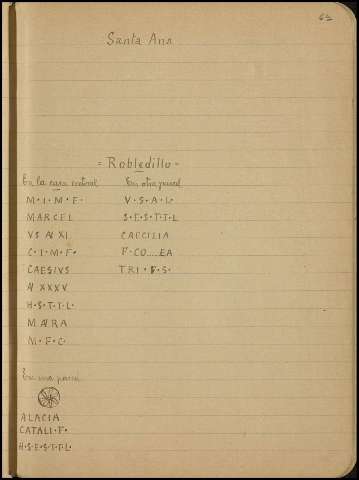 Santa Ana
= Robledillo =
En la casa rectoral
M·I·M·F·
MARCEL
VS AI XI
C·I·M·F·
CAESIVS
AI XXXV
H·S·T·T·L·
MAIRA
M·F·C·
En otra pared
V·S·A·L·
S·E·S·T·T·L
CAECILIA
F·CO....EA
TRI·F·S·
En una pared
ALACIA
CATALI·F·
H·S·E·S·T·T·L·